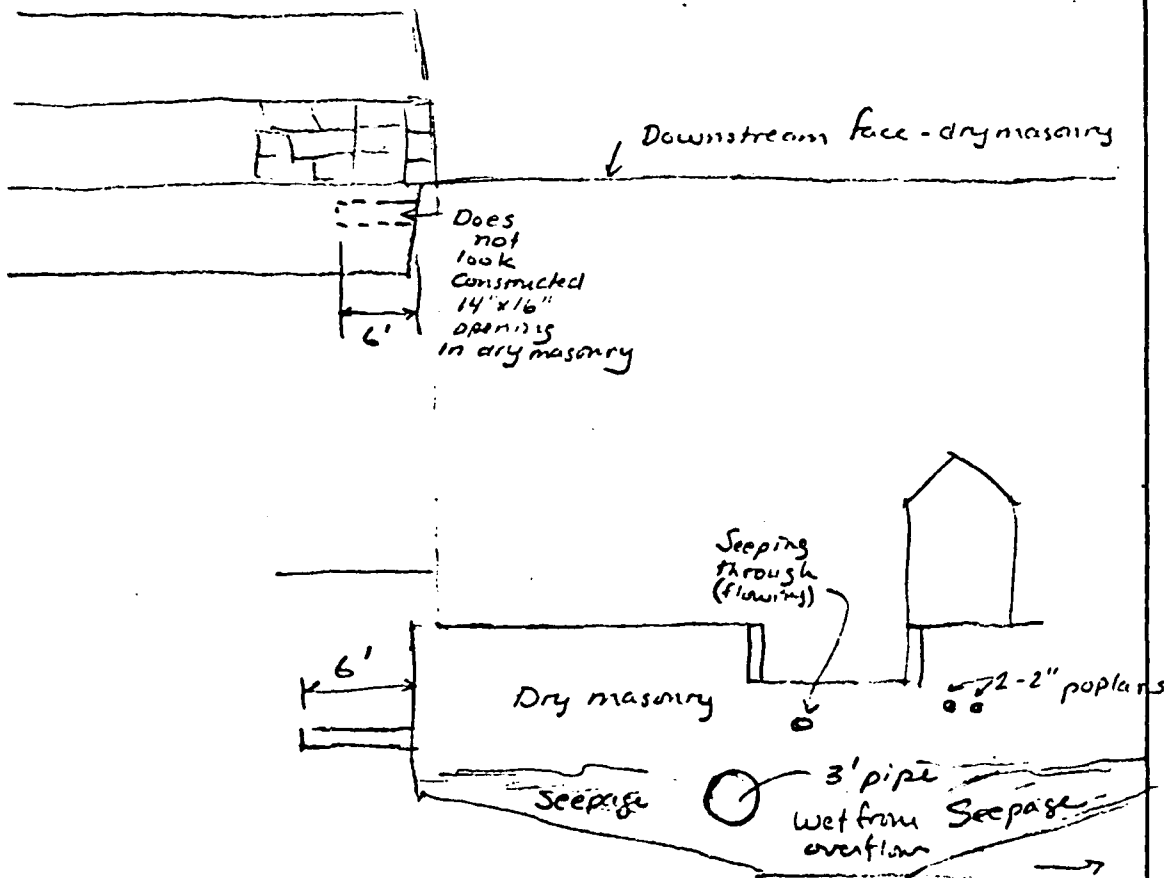 Downstream face - dry masonry
Does
not
look
constructed
14"x16"
opening
in dry masonry
6'
Seeping
through
(flowing)
6'
Dry masonry
2-2" poplars
Seepage
3' pipe
Wet from
overflow
Seepage